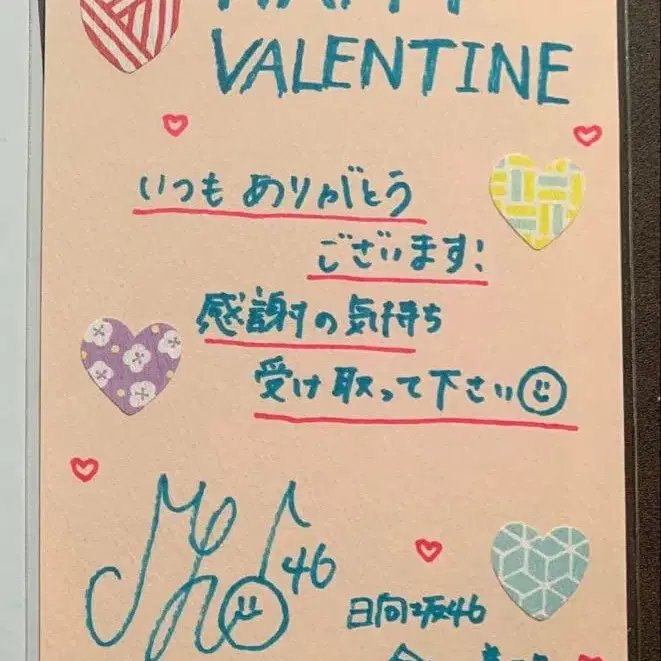 HAPPY
VALENTINE
いつも ありがとう
ございます!
感謝の気持ち
受け取って下さい
46
日向坂46